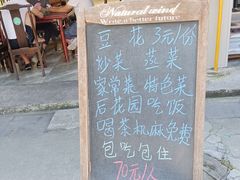 Natural wind
Write a better future
豆 花 3元/份
炒菜 蒸菜
家常菜 特色菜
后花园吃饭
喝茶机麻免费
包吃包住
70元/人